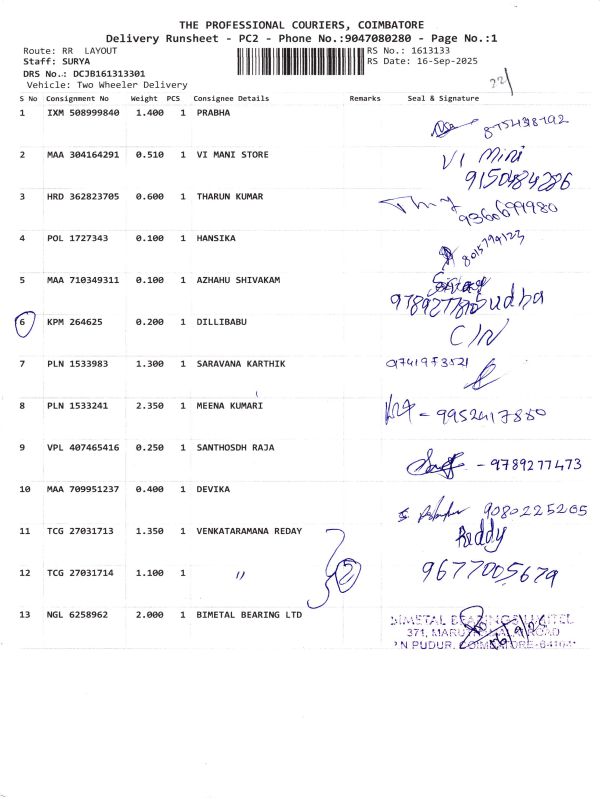 THE PROFESSIONAL COURIERS, COIMBATORE
Delivery Runsheet - PC2 - Phone No.:9047080280 - Page No.:1
Route: RR LAYOUT
RS No.: 1613133
Staff: SURYA
RS Date: 16-Sep-2025
DRS No.: DCJB161313301
Vehicle: Two Wheeler Delivery
22/
S No Consignment No Weight PCS Consignee Details Remarks Seal & Signature
1 IXM 508999840 1.400 1 PRABHA
2 MAA 304164291 0.510 1 VI MANI STORE VI Mini
9150484286
3 HRD 362823705 0.600 1 THARUN KUMAR
9360699980
4 POL 1727343 0.100 1 HANSIKA 8015794123
5 MAA 710349311 0.100 1 AZHAHU SHIVAKAM
Sudha
6 KPM 264625 0.200 1 DILLIBABU C/N
7 PLN 1533983 1.300 1 SARAVANA KARTHIK 9741973521
8 PLN 1533241 2.350 1 MEENA KUMARI - 9952417880
9 VPL 407465416 0.250 1 SANTHOSDH RAJA - 9789277473
10 MAA 709951237 0.400 1 DEVIKA 9080225205
11 TCG 27031713 1.350 1 VENKATARAMANA REDAY Reddy
12 TCG 27031714 1.100 1 〃 2 9677005679
13 NGL 6258962 2.000 1 BIMETAL BEARING LTD BIMETAL BEARINGS LIMITED
371, ROAD
PUDUR, COIMBATORE-641041